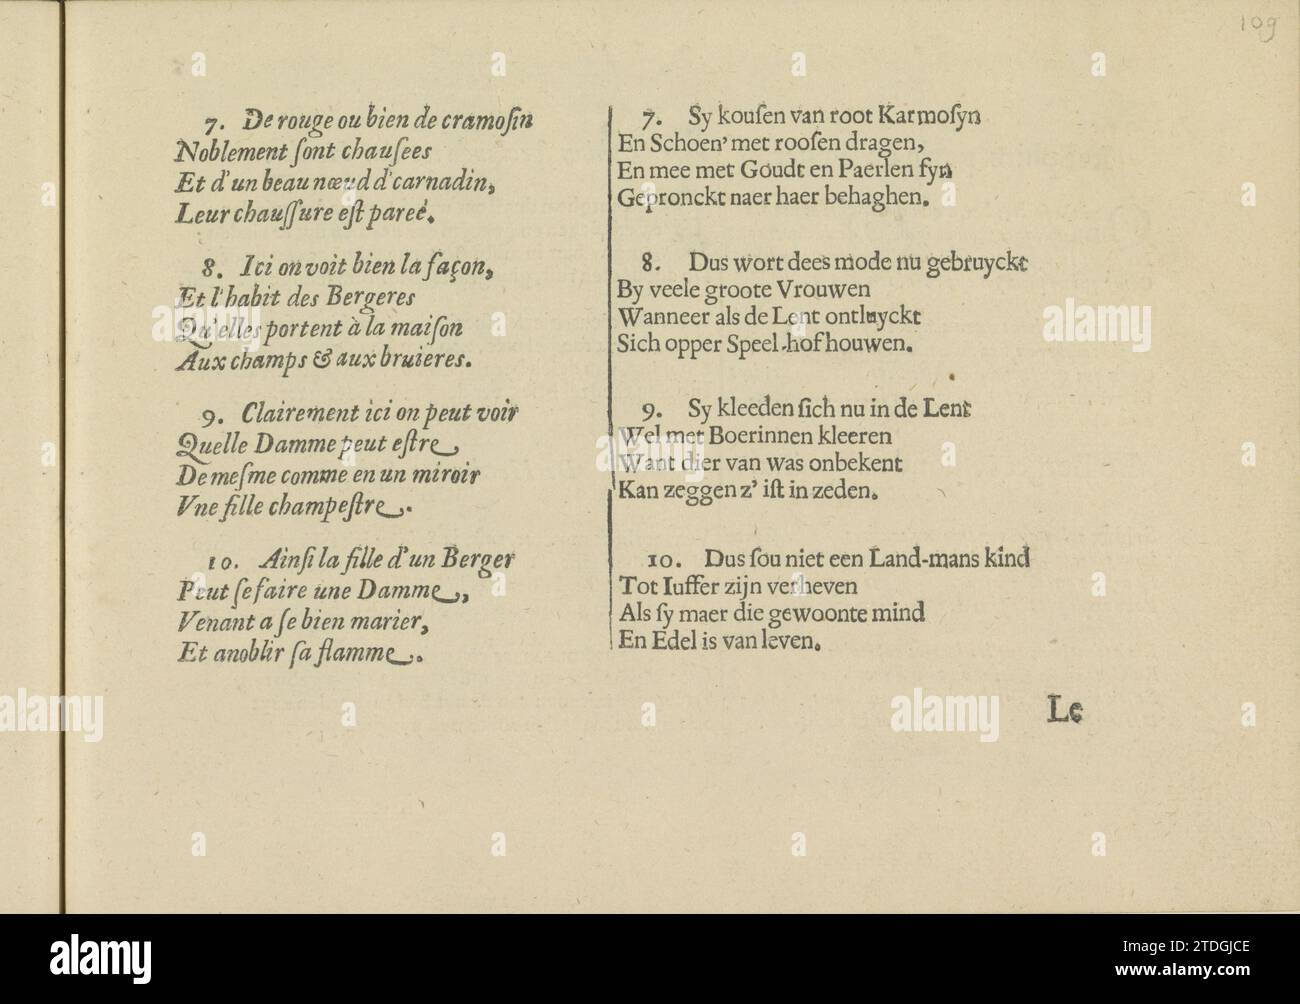 109
7. De rouge ou bien de cramoſin
Noblement ſont chauſees
Et d'un beau nœud d'carnadin,
Leur chauſſure eſt pareé.
8. Ici on voit bien la façon,
Et l'habit des Bergeres
Qu'elles portent à la maiſon
Aux champs & aux bruieres.
9. Clairement ici on peut voir
Quelle Damme peut eſtre
De meſme comme en un miroir
Vne fille champeſtre.
10. Ainſi la fille d'un Berger
Peut ſe faire une Damme,
Venant a ſe bien marier,
Et anoblir ſa flamme.
7. Sy kouſen van root Karmoſyn
En Schoen' met rooſen dragen,
En mee met Goudt en Paerlen fyn
Gepronckt naer haer behaghen.
8. Dus wort dees mode nu gebruyckt
By veele groote Vrouwen
Wanneer als de Lent ontluyckt
Sich opper Speel-hof houwen.
9. Sy kleeden ſich nu in de Lent
Wel met Boerinnen kleeren
Want dier van was onbekent
Kan zeggen z' iſt in zeden.
10. Dus ſou niet een Land-mans kind
Tot Iuffer zijn verheven
Als ſy maer die gewoonte mind
En Edel is van leven.
Le
alamy
Image ID: 2TDGJCE
www.alamy.com